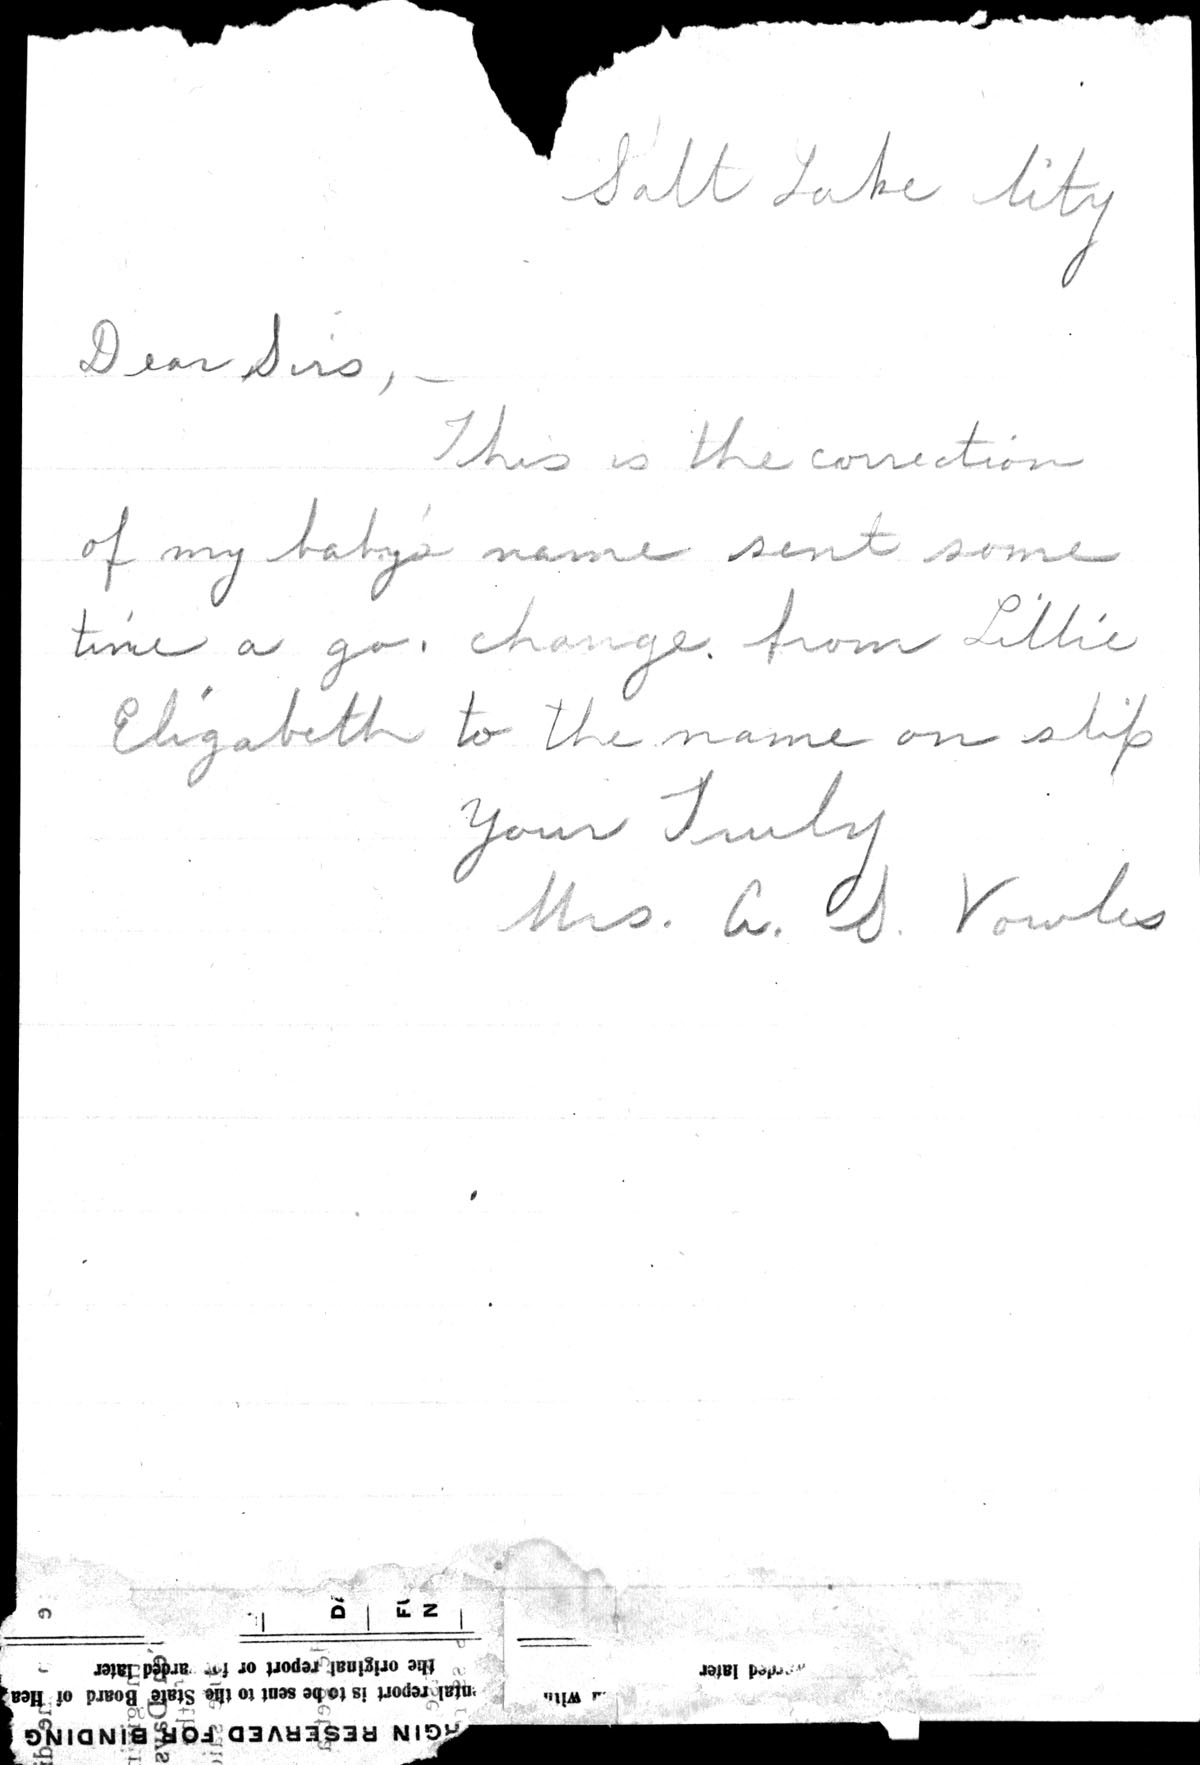 Salt Lake City
Dear Sirs, –
This is the correction
of my baby's name sent some
time a go. change. from Lillie
Elizabeth to the name on slip
Your Truly
Mrs. A. D. Vowles
GIN RESERVED FOR BINDING
ntal report is to be sent to the State Board of Hea
with
the original report or for arded later
arded later